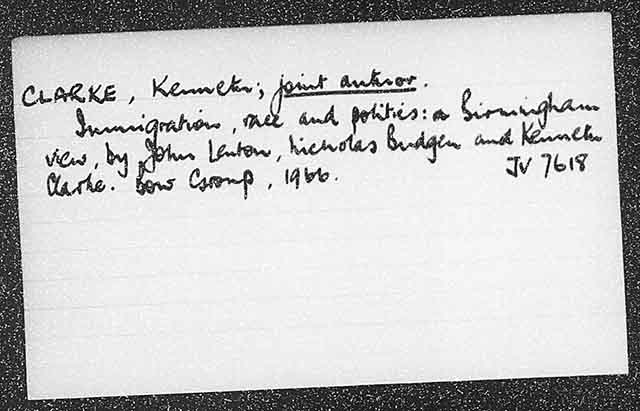 CLARKE, Kenneth; joint author.
Immigration, race and politics: a Birmingham
view, by John Lenton, Nicholas Budgen and Kenneth
Clarke. Bow Group, 1966. JV 7618